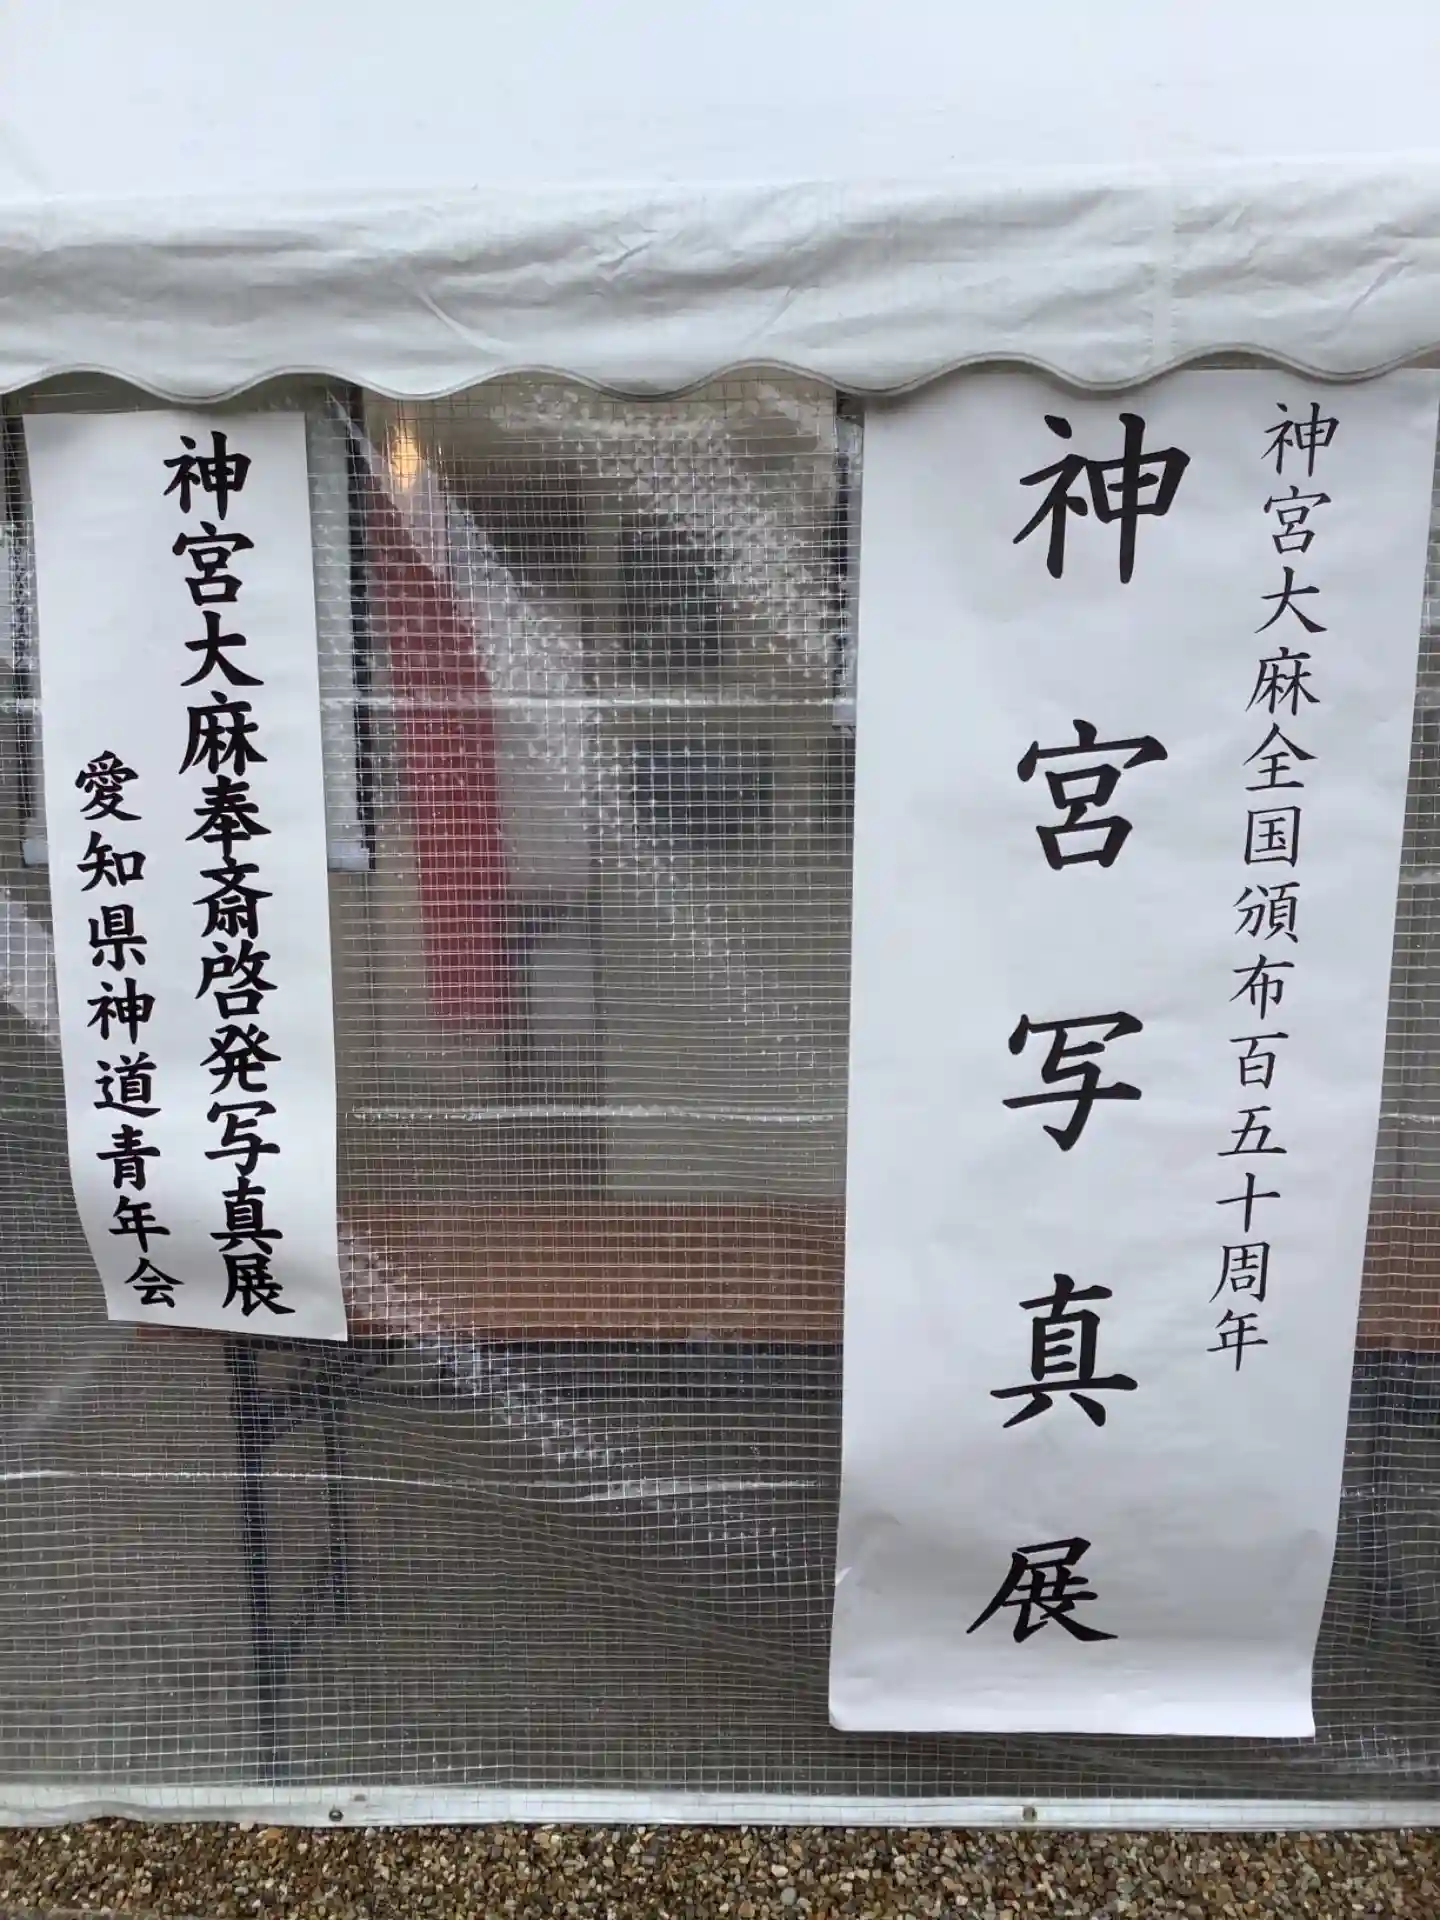 神宮大麻全国頒布百五十周年
神宮写真展
神宮大麻奉斎啓発写真展
愛知県神道青年会